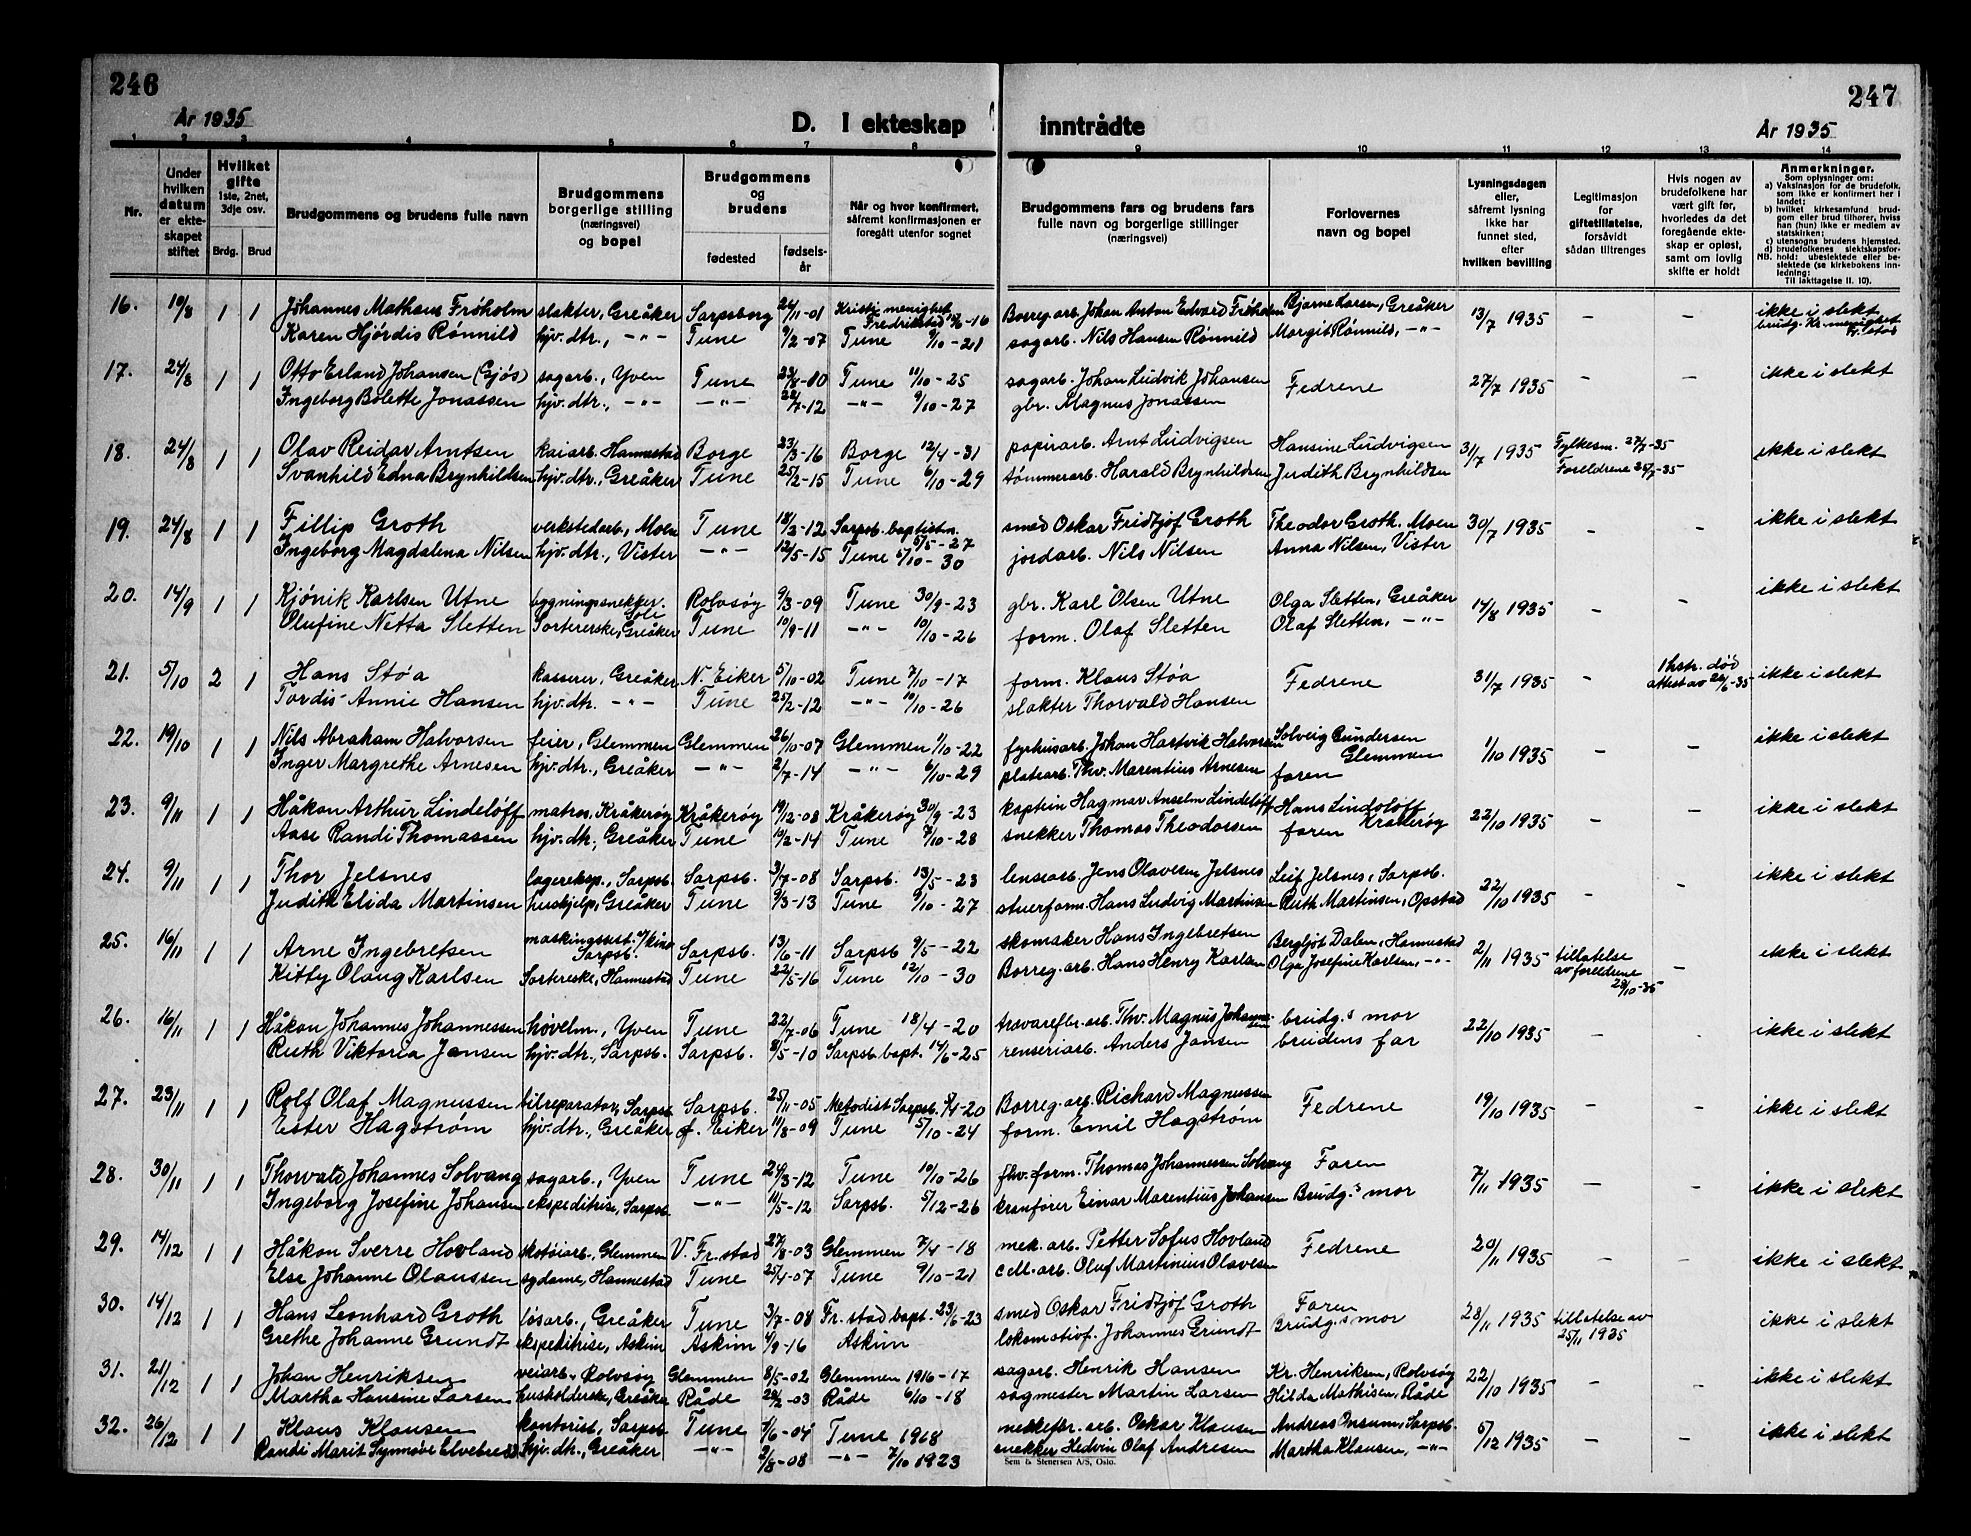 246
År 1935
D. I ekteskap
inntrådte
247
År 1935
1 2 3 4 5 6 7 8 9 10 11 12 13 14
Nr.
Under hvilken datum er ekteskapet stiftet
Hvilket gifte 1ste, 2net, 3dje osv.
Brdg. Brud
Brudgommens og brudens fulle navn
Brudgommens borgerlige stilling (næringsvei) og bopel
Brudgommens og brudens
fødested fødselsår
Når og hvor konfirmert, såfremt konfirmasjonen er foregått utenfor sognet
Brudgommens fars og brudens fars fulle navn og borgerlige stillinger (næringsvei)
Forlovernes navn og bopel
Lysningsdagen eller, såfremt lysning ikke har funnet sted, efter hvilken bevilling
Legitimasjon for giftetillatelse, forsåvidt sådan tiltrenges
Hvis nogen av brudefolkene har vært gift før, hvorledes da det foregående ekteskap er opløst, samt om lovlig skifte er holdt
Anmerkninger.
Som oplysninger om:
a) Vaksinasjon for de brudefolk, som ikke er konfirmert her i landet;
b) hvilket kirkesamfund brudgom eller brud tilhører, hvis han (hun) ikke er medlem av statskirken;
c) utensogns brudens hjemsted.
d) brudefolkenes slektskapsforhold: ubeslektede eller beslektede (se kirkebokens innledning:
NB.
Til iakttagelse II. 10).
16. 10/8 1 1 Johannes Mathæus Frøholm slakter, Greåker Sarpsborg 24/11-01 Kristi menighet Fredrikstad -16 Borreg.arb. Johan Anton Edvard Frøholm Bjarne Larsen, Greåker 13/7 1935 - - ikke i slekt brudg. Kr. menighet Fr.stad
Karen Hjørdis Rønnild hjv.dtr., -"- Tune 9/2-07 Tune 9/10-21 sagarb. Nils Hansen Rønnild Margit Rønnild, -"-
17. 24/8 1 1 Otto Erland Johansen (Gjøs) sagarb., Yven Tune 23/8-00 Tune 11/10-25 sagarb. Johan Ludvik Johansen Fedrene 27/7 1935 - - ikke i slekt
Ingeborg Bolette Jonassen hjv.dtr., -"- -"- 22/7-12 -"- 9/10-27 gbr. Magnus Jonassen
18. 24/8 1 1 Olav Reidar Arntsen kaiarb. Hannestad Borge 23/3-16 Borge 12/4-31 papirarb. Arnt Ludvigsen Hansine Ludvigsen 31/7 1935 Fylkesm. 27/7-35 ikke i slekt
Svanhild Edna Brynhildsen hjv.dtr., Greåker Tune 25/2-15 Tune 6/10-29 tømmerarb. Harald Brynhildsen Judith Brynhildsen Foreldrene 25/7-35
19. 24/8 1 1 Fillip Groth verkstedarb., Moen Tune 18/3-12 Sarpsb. baptistm. 5/5-27 smed Oskar Fridtjof Groth Theodor Groth. Moen 30/7 1935 - - ikke i slekt
Ingeborg Magdalena Nilsen hjv.dtr., Vister -"- 12/5-15 Tune 5/10-30 jordarb. Nils Nilsen Anna Nilsen, Vister
20. 14/9 1 1 Kjønik Karlsen Utne bygningssnekker. Soli Rolvsøy 9/3-09 Tune 30/9-23 gbr. Karl Olsen Utne Olga Sletten, Greåker 14/8 1935 - - ikke i slekt
Olufine Netta Sletten Sortererske, Greåker Tune 10/9-11 -"- 10/10-26 form. Olaf Sletten Olaf Sletten, -"-
21. 5/10 2 1 Hans Støa kasserer, Greåker N. Eiker 5/10-02 Tune 7/10-17 form. Klaus Støa Fedrene 31/7 1935 - 1 hstr. død attest av 26/6-35 ikke i slekt
Tordis Annie Hansen hjv.dtr. -"- Tune 25/2-12 -"- 10/10-26 slakter Thorvald Hansen
22. 19/10 1 1 Nils Abraham Halvorsen feier, Glemmen Glemmen 26/10-07 Glemmen 1/10-22 fyrhusarb. Johan Hartvik Halvorsen Solveig Gundersen Glemmen 1/10 1935 - - ikke i slekt
Inger Margrethe Arnesen hjv.dtr., Greåker -"- 2/7-14 -"- 6/10-29 platearb. Thv. Marentius Arnesen faren
23. 9/11 1 1 Håkon Arthur Lindeløff matros, Kråkerøy Kråkerøy 19/12-08 Kråkerøy 30/9-23 kaptein Hagmar Anselm Lindeløff Hans Lindeløff Kråkerøy 22/10 1935 - - ikke i slekt
Aase Randi Thomassen hjv.dtr., Greåker Tune 19/2-14 Tune 7/10-28 snekker Thomas Theodorsen faren
24. 9/11 1 1 Thor Jelsnes lagereksp., Sarpsb. Sarpsb. 3/7-08 Sarpsb. 13/5-23 lensearb. Jens Olavesen Jelsnes Leif Jelsnes, Sarpsb. 22/10 1935 - - ikke i slekt
Judith Elida Martinsen hushjelp, Greåker Tune 9/3-13 Tune 9/10-27 stuerform. Hans Ludvig Martinsen Ruth Martinsen, Opstad
25. 16/11 1 1 Arne Ingebretsen maskingssist. v/kino Sarpsb. Sarpsb. 13/6-11 Sarpsb 9/5-22 skomaker Hans Ingebretsen Bergljot Dalen, Hannestad 2/11 1935 tillatelse av foreldrene 28/10-35 - ikke i slekt
Kitty Olaug Karlsen Sortereske, Hannestad Tune 22/5-16 Tune 12/10-30 Borreg.arb. Hans Henry Karlsen Olga Josefine Karlsen, -"-
26. 16/11 1 1 Håkon Johannes Johannessen høvelm., Yven Tune 22/7-06 Tune 18/4-20 trævarefbr.arb. Thv. Magnus Johannessen brudg.s mor 22/10 1935 - - ikke i slekt
Ruth Viktoria Jansen hjv.dtr., Sarpsb. Sarpsb. 8/5-10 Sarpsb. bapt. 14/6-25 renseriarb. Anders Jansen brudens far
27. 23/11 1 1 Rolf Olaf Magnussen bilreparatør, Sarpsb Sarpsb. 25/11-05 Metodist Sarpsb. 4/4-20 Borreg.arb. Richard Magnussen Fedrene 19/10 1935 - - ikke i slekt
Ester Hagstrøm hjv.dtr., Greåker Ø. Eiker 11/8-09 Tune 5/10-24 form. Emil Hagstrøm
28. 30/11 1 1 Thorvald Johannes Solvang sagarb., Yven Tune 24/3-12 Tune 10/10-26 fhv. form. Thomas Johannessen Solvang Faren 7/11 1935 - - ikke i slekt
Ingeborg Josefine Johansen ekspeditrise, Sarpsb. -"- 11/5-12 Sarpsb. 5/12-26 kranfører Einar Marentius Johansen Brudg.s mor
29. 14/12 1 1 Håkon Sverre Hovland skotøiarb., Glemmen V. Fr.stad 27/8-03 Glemmen 7/4-18 mek.arb. Petter Sofus Hovland Fedrene 20/11 1935 - - ikke i slekt
Else Johanne Olaussen sydame, Hannestad Tune 25/4-07 Tune 9/10-21 cell.arb. Oluf Martinius Olavesen
30. 14/12 1 1 Hans Leonhard Groth løsarb., Greåker Tune 3/7-08 Fr.stad bapt. 23/6-23 smed Oskar Fridtjof Groth Faren 28/11 1935 tillatelse av 25/11 1935 - ikke i slekt
Grethe Johanne Grundt ekspeditrise, Askim Askim 4/9-16 Askim lokomotivf. Johannes Grundt Brudg.s mor
31. 21/12 1 1 Johan Henriksen veiarb., Rolvsøy Glemmen 8/5-02 Glemmen 1916-17 sagarb. Henrik Hansen Kr. Henriksen, Rolvsøy 22/10 1935 - - ikke i slekt
Martha Hansine Larsen husholderske, Greåker Råde 29/2-03 Råde 6/10-18 sagmester Martin Larsen Hilda Mathisen, Råde
32. 26/12 1 1 Klaus Klausen kontorist, Sarpsb. Tune 1/6-04 Tune 1968 melkefbr.arb. Oskar Klausen Andreas Onsum, Sarpsb. 5/12 1935 - - ikke i slekt
Randi Marit Synnøve Elvebredd hjv.dtr., Greåker -"- 2/8-08 -"- 7/10 1923 snekker Hedvin Olaf Andresen Martha Klausen, -"-
Sem & Stenersen A/S, Oslo.